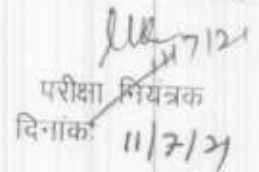 11/7/21
परीक्षा नियंत्रक
दिनांक: 11/7/21